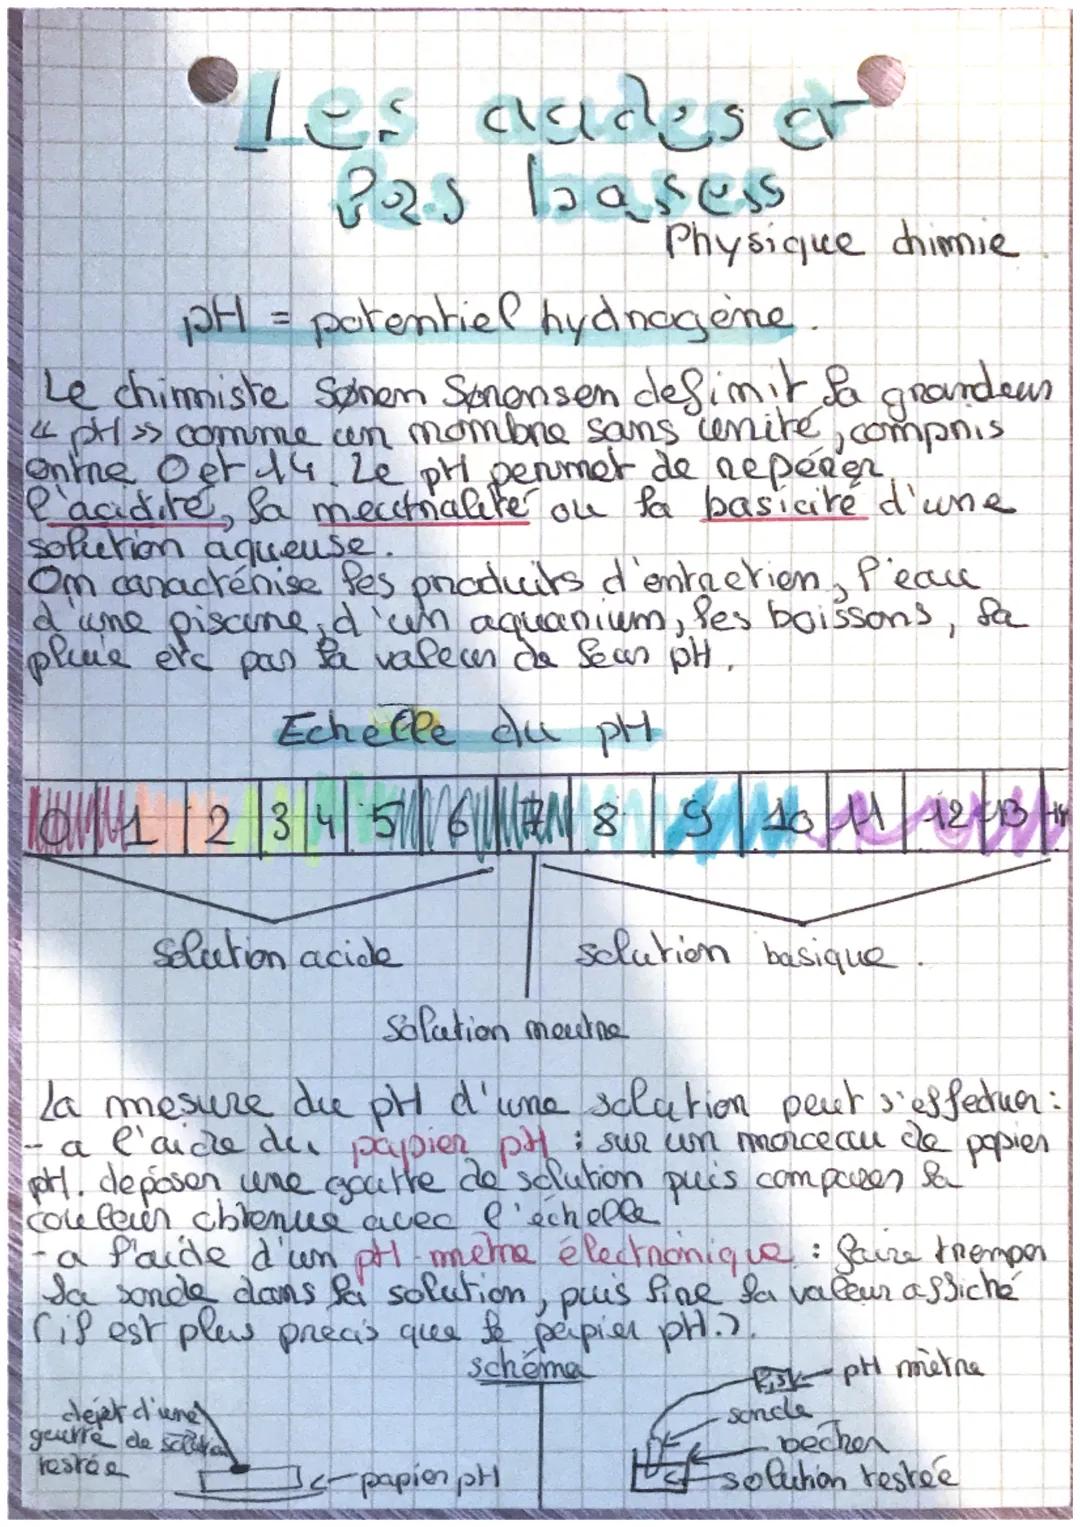 Les acides et
les bases
Physique chimie
pH = potentiel hydrogène.
Le chimiste Søren Sørensen définit la grandeur
« pH » comme un nombre sans unité, compris
entre 0 et 14. Le pH permet de repérer
l'acidité, la neutralité ou la basicité d'une
solution aqueuse.
On caractérise les produits d'entretien, l'eau
d'une piscine, d'un aquarium, les boissons, la
pluie etc par la valeur de leur pH.
Echelle du pH
0 1 2 3 4 5 6 7 8 9 10 11 12 13 14
solution acide
solution basique.
solution neutre
La mesure du pH d'une solution peut s'effectuer:
- a l'aide du papier pH : sur un morceau de papier
pH. déposer une goutte de solution puis comparer la
couleur obtenue avec l'échelle
- a l'aide d'un pH-mètre électronique : faire tremper
la sonde dans la solution, puis lire la valeur affiché
(il est plus précis que le papier pH.).
schéma
dépôt d'une
goutte de solution
testée
papier pH
pH mètre
sonde
becher
solution testée